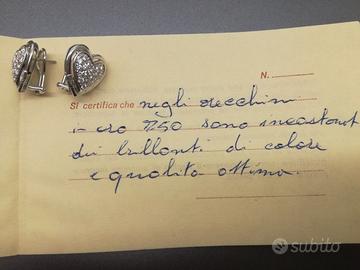 N.
Si certifica che negli orecchini
in oro 750 sono incastonati
dei brillanti di colore
e qualità ottima.
subito